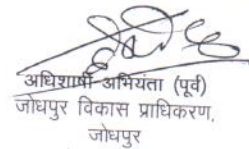 अधिशाषी अभियंता (पूर्व)
जोधपुर विकास प्राधिकरण,
जोधपुर